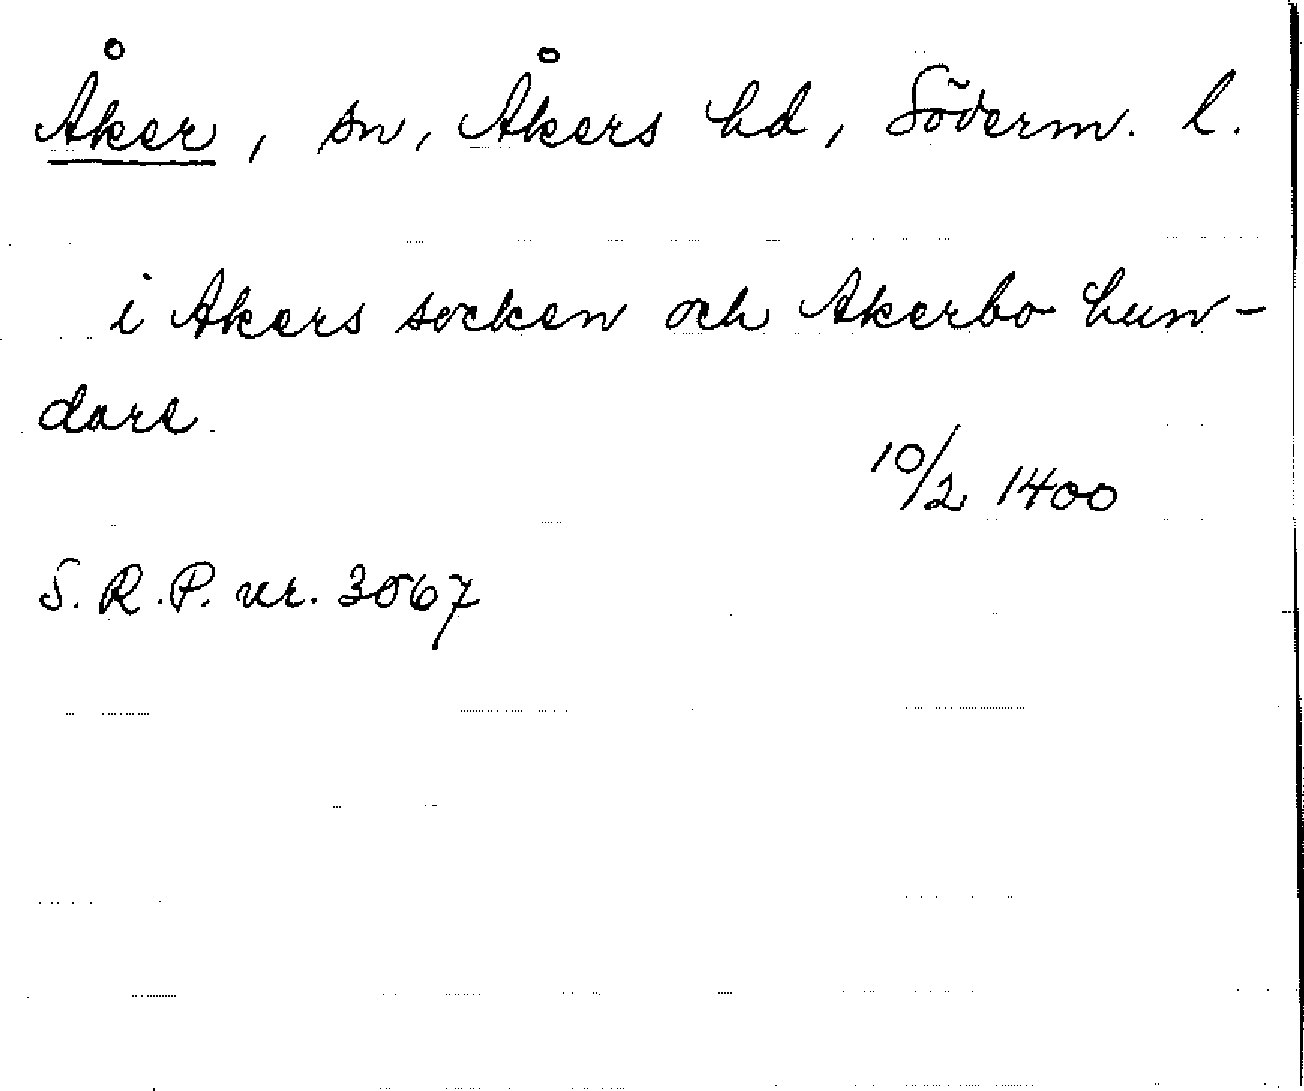 Åker, sn, Åkers hd, Söderm. l.
i Akers socken och Akerbo hun-
dare
10/2 1400
S. R. P. nr. 3067